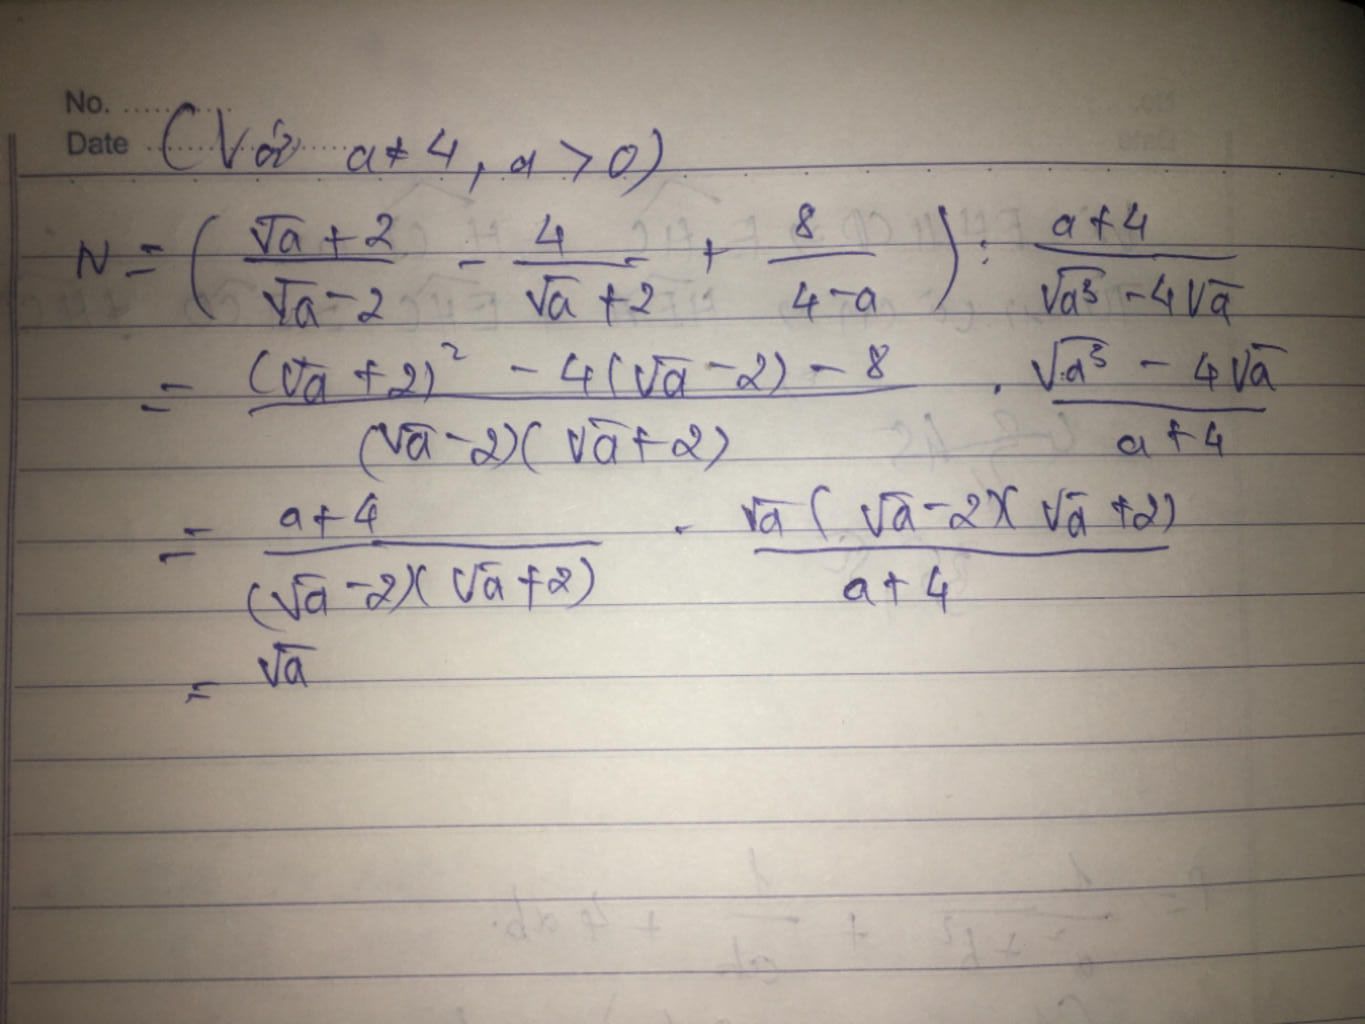 No. ............
Date ............ (Với a ≠ 4, a > 0)
N = ( (√a + 2)/(√a - 2) - 4/(√a + 2) + 8/(4 - a) ) : (a + 4)/(√a³ - 4√a)
= ((√a + 2)² - 4(√a - 2) - 8)/((√a - 2)(√a + 2)) . (√a³ - 4√a)/(a + 4)
= (a + 4)/((√a - 2)(√a + 2)) . (√a(√a - 2)(√a + 2))/(a + 4)
= √a